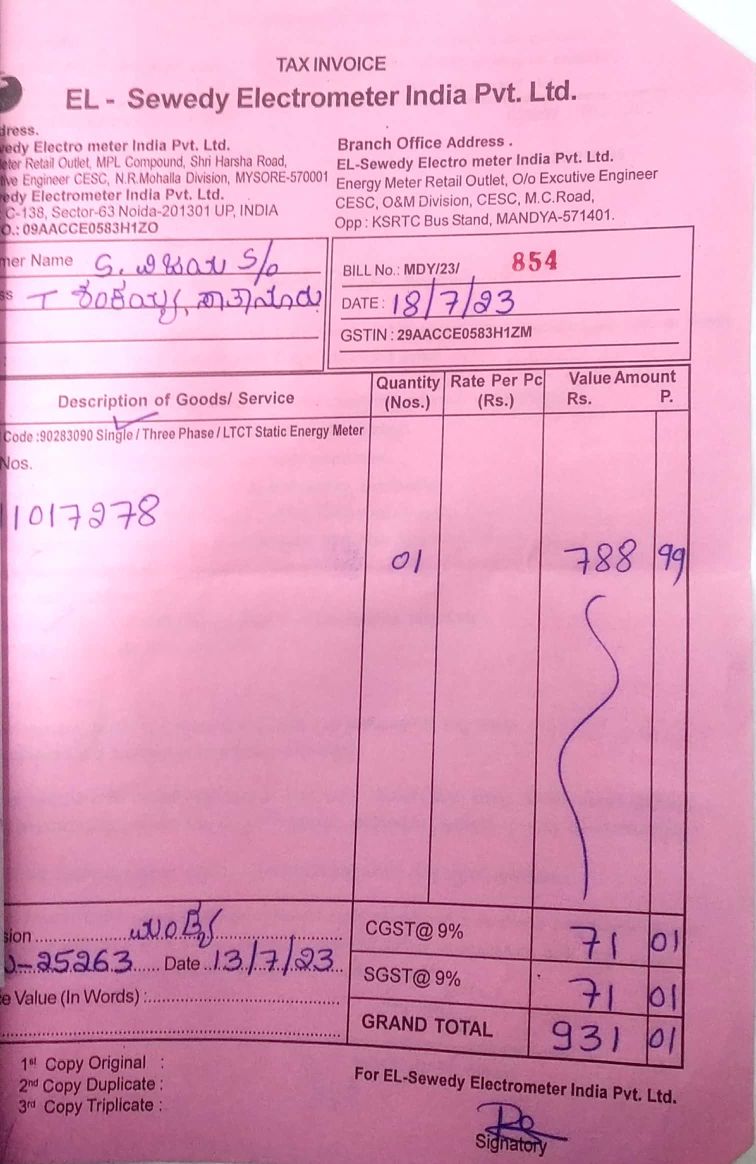 TAX INVOICE
EL - Sewedy Electrometer India Pvt. Ltd.
dress.
wedy Electro meter India Pvt. Ltd.
eter Retail Outlet, MPL Compound, Shri Harsha Road,
tive Engineer CESC, N.R.Mohalla Division, MYSORE-570001
edy Electrometer India Pvt. Ltd.
C-138, Sector-63 Noida-201301 UP, INDIA
O.: 09AACCE0583H1ZO
Branch Office Address .
EL-Sewedy Electro meter India Pvt. Ltd.
Energy Meter Retail Outlet, O/o Excutive Engineer
CESC, O&M Division, CESC, M.C.Road,
Opp : KSRTC Bus Stand, MANDYA-571401.
mer Name S. ವಿಜಯ S/o
ss T
BILL No.: MDY/23/ 854
DATE : 18/7/23
GSTIN : 29AACCE0583H1ZM
Description of Goods/ Service Quantity (Nos.) Rate Per Pc (Rs.) Value Amount Rs. P.
Code :90283090 Single / Three Phase / LTCT Static Energy Meter
Nos.
11017278
01 788 99
sion ಮಂಡ್ಯ CGST@ 9% 71 01
-25263 Date 13/7/23
SGST@ 9% 71 01
e Value (In Words) :
GRAND TOTAL 931 01
1st Copy Original :
2nd Copy Duplicate :
3rd Copy Triplicate :
For EL-Sewedy Electrometer India Pvt. Ltd.
Signatory